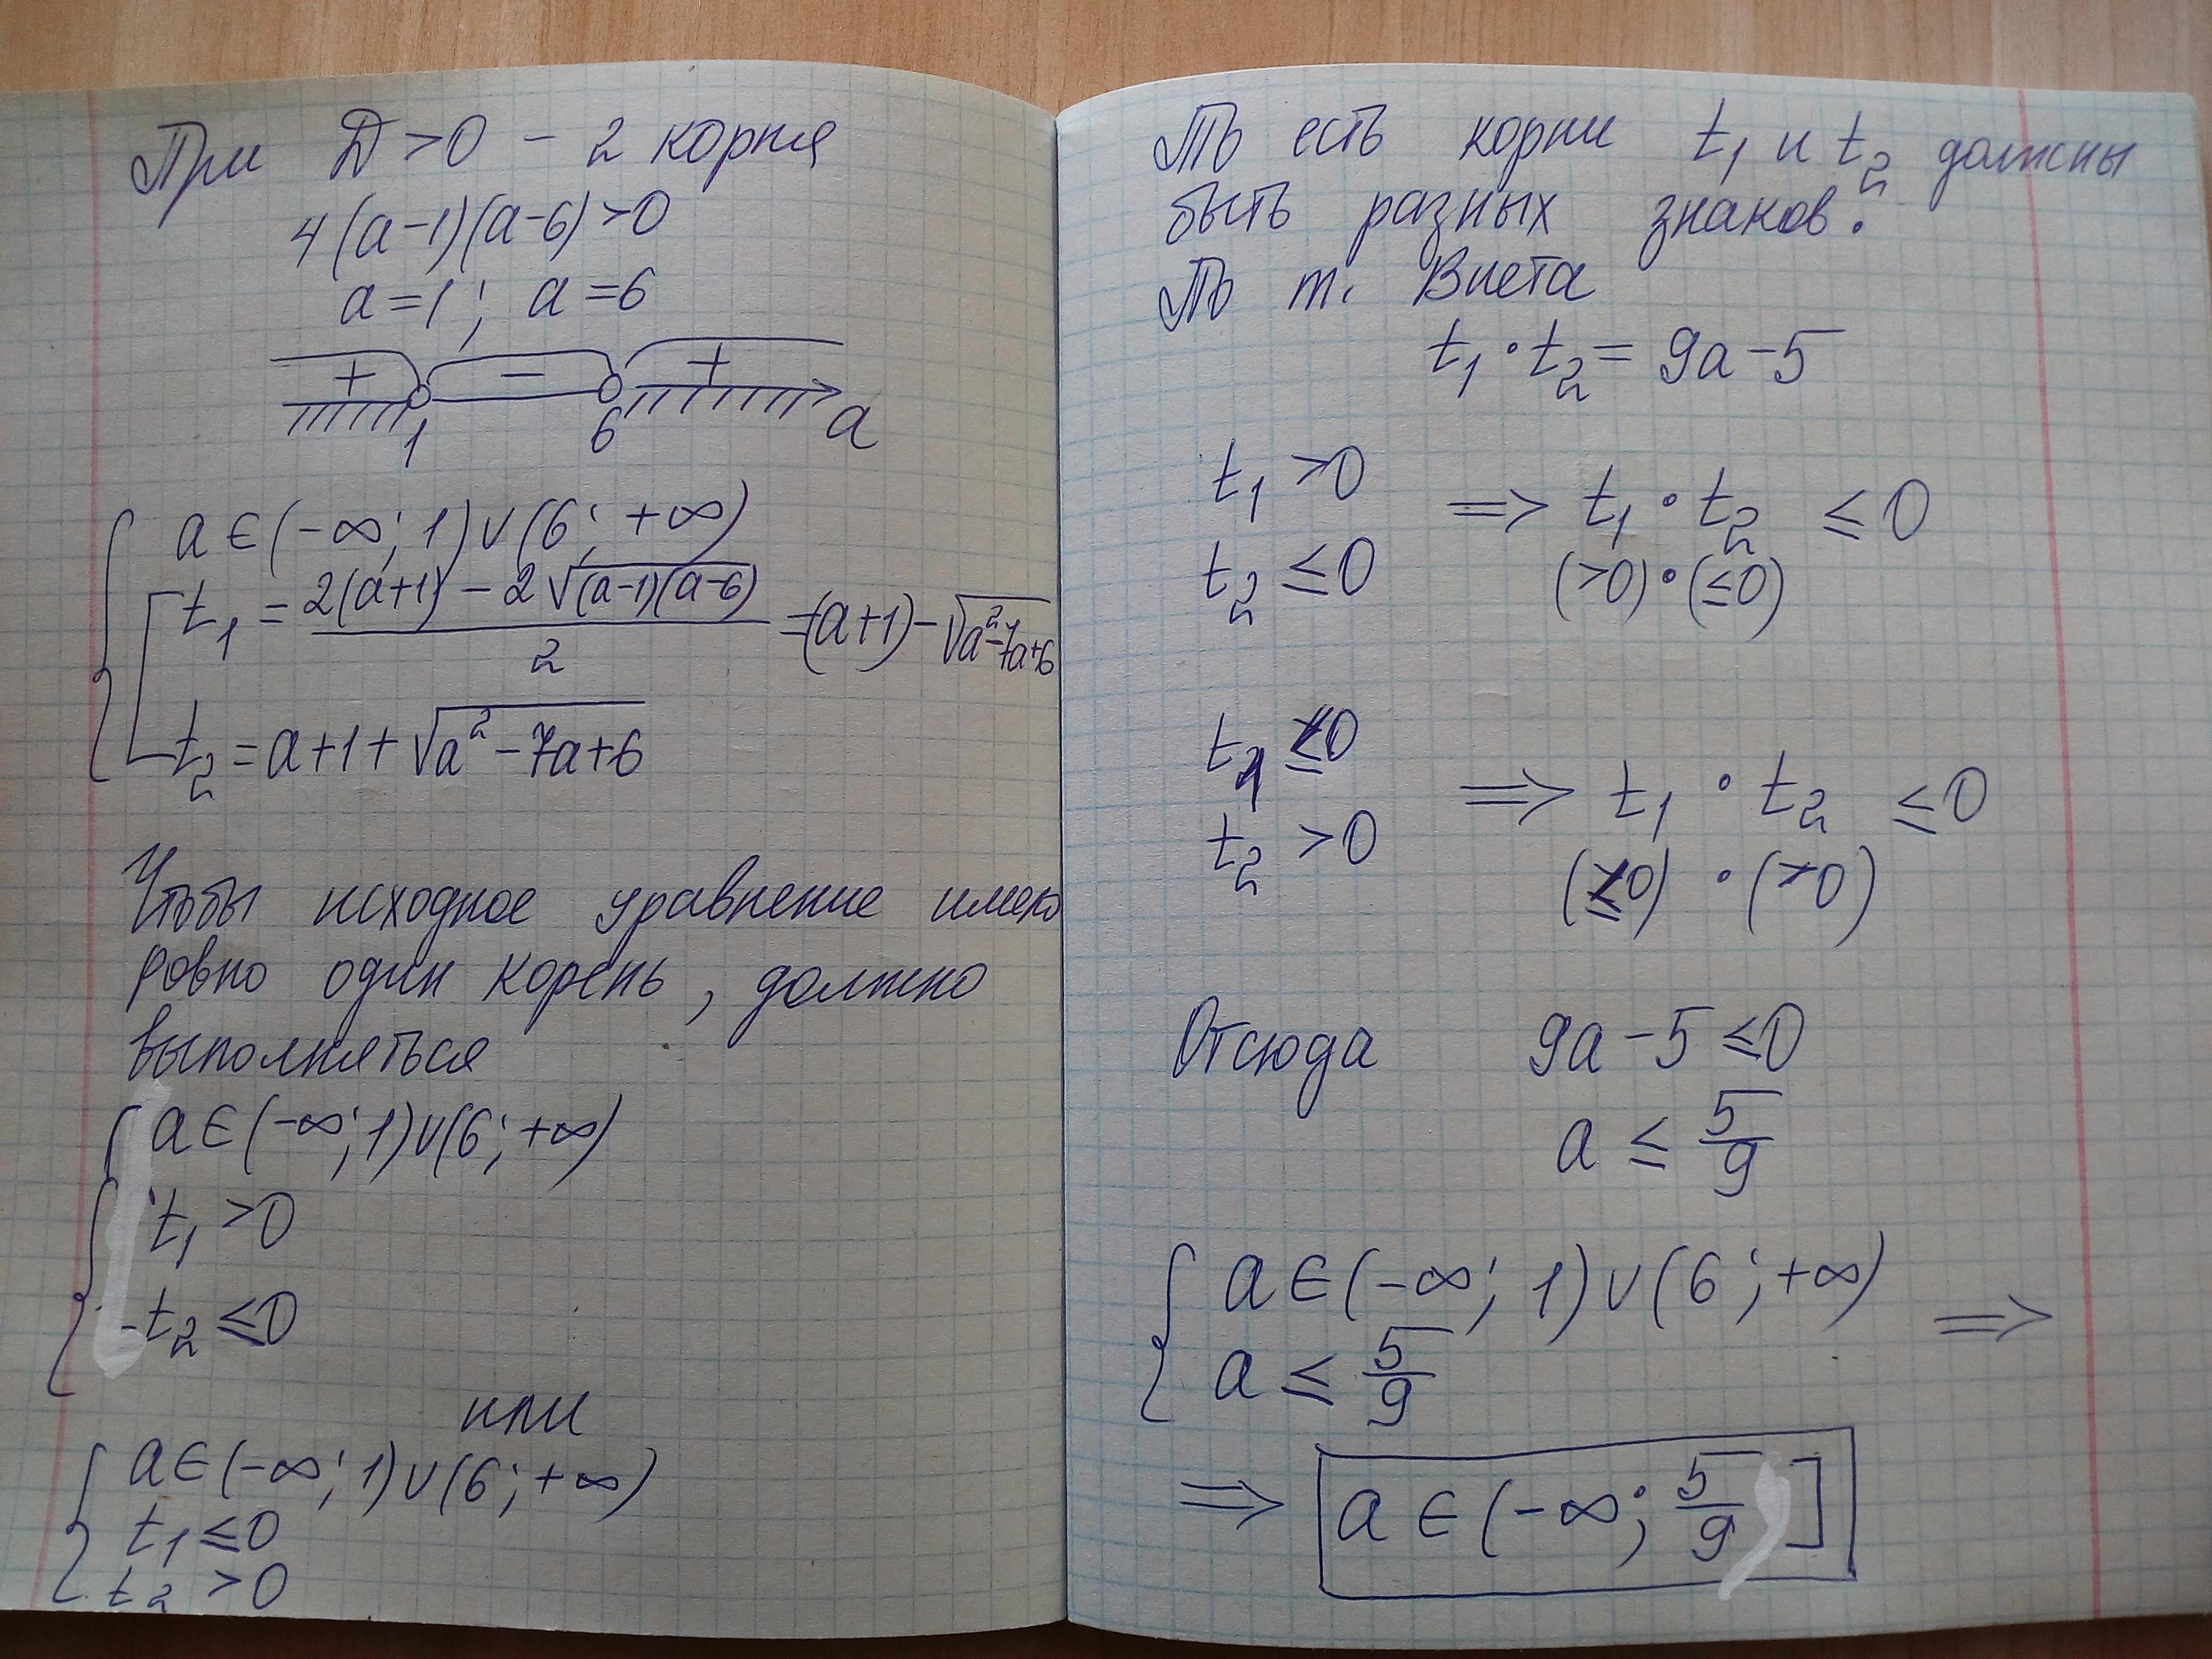 При D>0 - 2 корня
4(a-1)(a-6)>0
a=1; a=6
+ - +
1 6 a
a∈(-∞; 1)∪(6; +∞)
t₁ = (2(a+1) - 2√((a-1)(a-6)))/2 = (a+1) - √(a²-7a+6)
t₂ = a+1+√(a²-7a+6)
Чтобы исходное уравнение имело
ровно один корень, должно
выполняться
a∈(-∞; 1)∪(6; +∞)
t₁ >0
t₂ ≤0
или
a∈(-∞; 1)∪(6; +∞)
t₁ ≤0
t₂ >0
То есть корни t₁ и t₂ должны
быть разных знаков.
По т. Виета
t₁ · t₂ = 9a-5
t₁ >0
t₂ ≤0
⇒ t₁ · t₂ ≤ 0
(>0)·(≤0)
t₁ ≤0
t₂ >0
⇒ t₁ · t₂ ≤0
(≤0) · (>0)
Отсюда 9a-5 ≤0
a ≤ 5/9
a∈(-∞; 1)∪(6; +∞)
a ≤ 5/9 ⇒
⇒ a∈(-∞; 5/9]